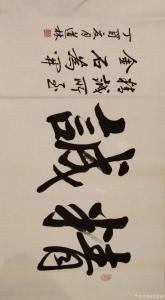 精誠
精誠所至
金石為開
丁酉亥月道林